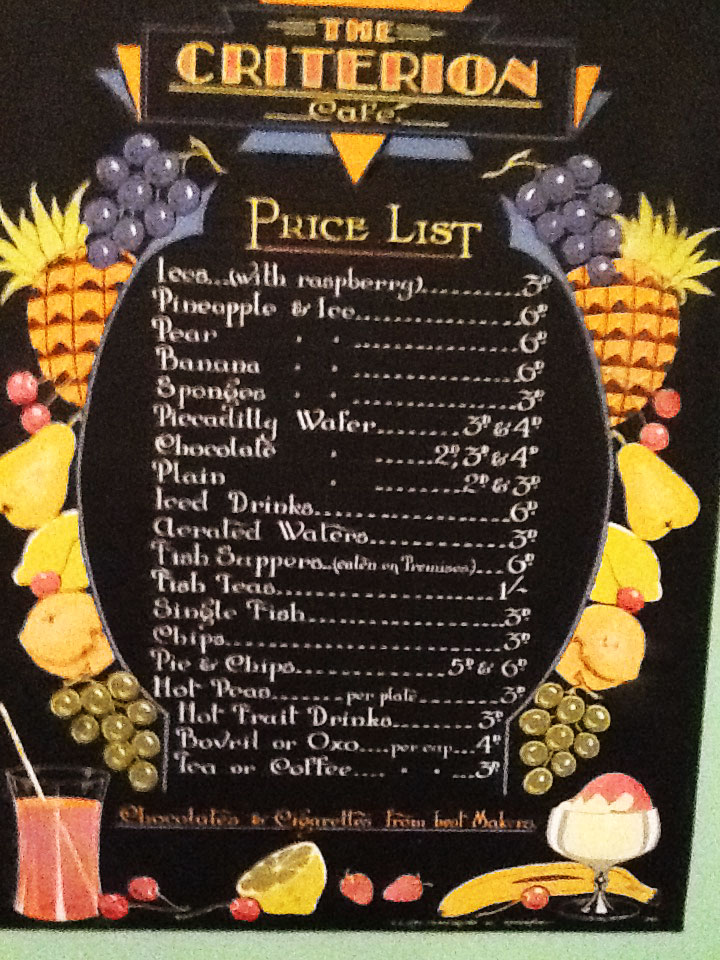 THE
CRITERION
Café
PRICE LIST
Ices...(with raspberry)..........3ᴰ
Pineapple & Ice..................6ᴰ
Pear " " ..................6ᴰ
Banana " " ..................6ᴰ
Sponges " " ..................3ᴰ
Piccadilly Wafer.........3ᴰ & 4ᴰ
Chocolate " ......2ᴰ, 3ᴰ & 4ᴰ
Plain " .........2ᴰ & 3ᴰ
Iced Drinks......................6ᴰ
Aerated Waters..................3ᴰ
Fish Suppers..(eaten on Premises)...6ᴰ
Fish Teas.........................1/-
Single Fish......................3ᴰ
Chips.............................3ᴰ
Pie & Chips................5ᴰ & 6ᴰ
Hot Peas........per plate.........3ᴰ
Hot Fruit Drinks.........3ᴰ
Bovril or Oxo....per cup...4ᴰ
Tea or Coffee.... " " ...3ᴰ
Chocolates & Cigarettes from best Makers